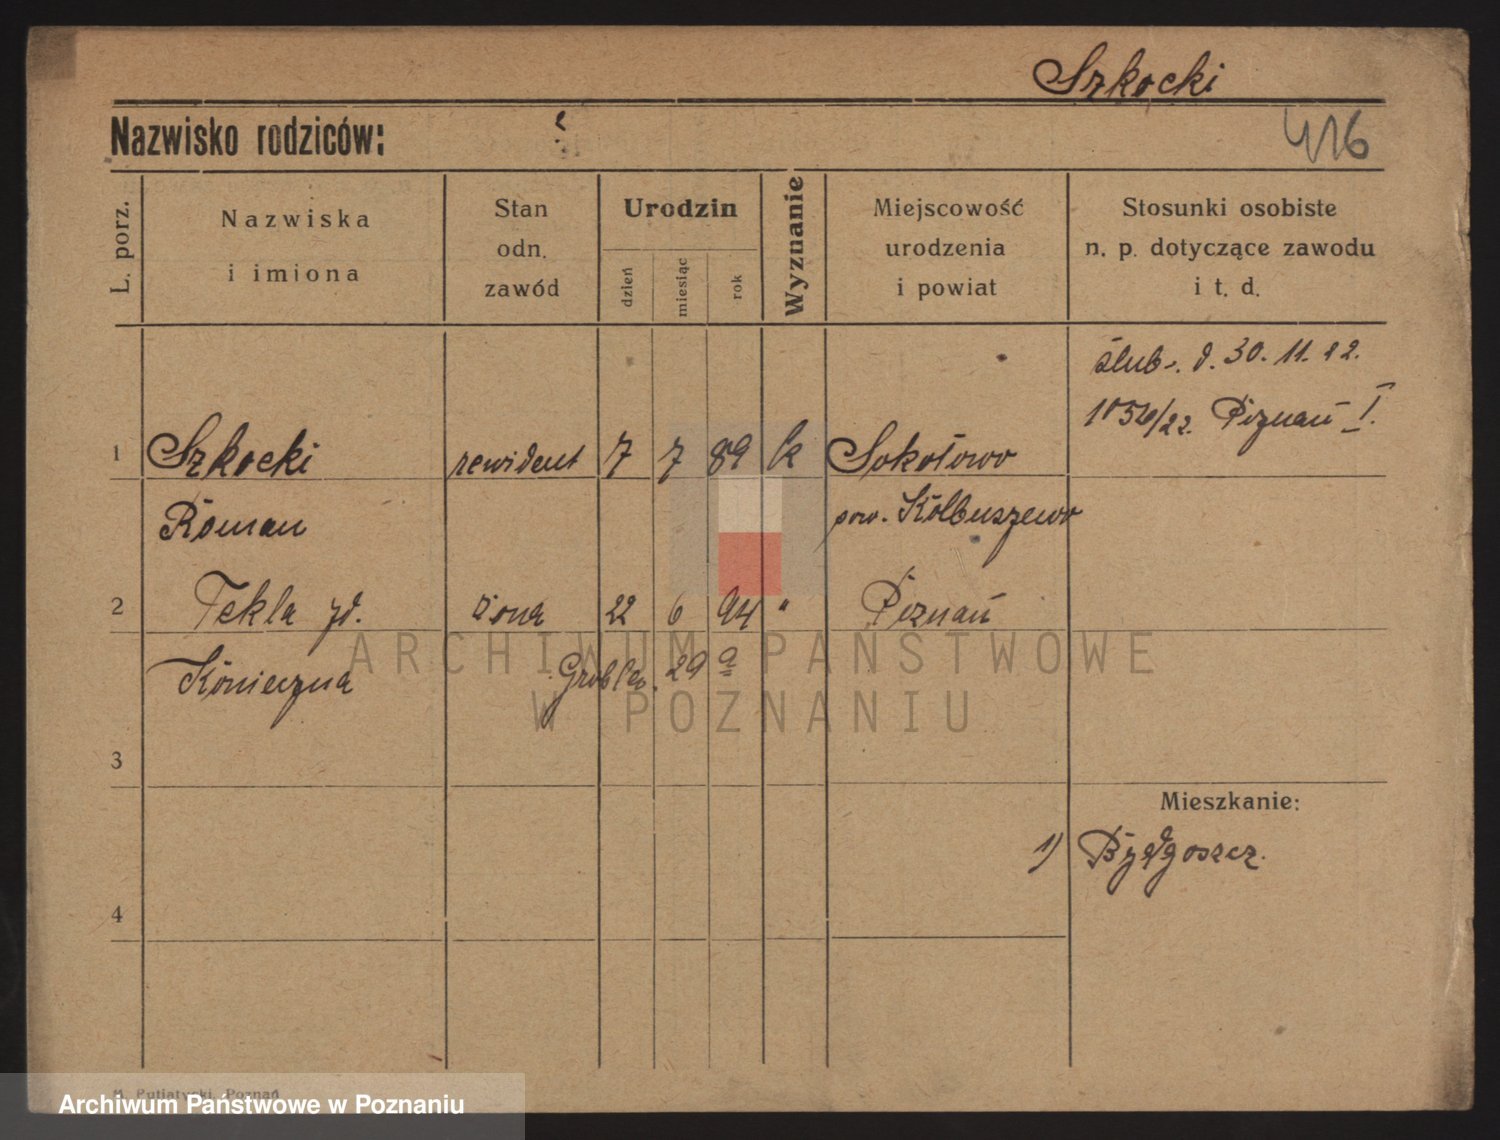 Szkocki
Nazwisko rodziców:
416
L. porz.
Nazwiska
i imiona
Stan
odn.
zawód
Urodzin
dzień
miesiąc
rok
Wyznanie
Miejscowość
urodzenia
i powiat
Stosunki osobiste
n. p. dotyczące zawodu
i t. d.
ślub. d. 30. 11. 22.
/22. Poznań I.
1 Szkocki rewident 7 7 89 k Sokołowo
Roman pow. Kolbuszewo
2 Tekla żona 22 6 94 " Poznań
Konieczna 29 a
ARCHIWUM PAŃSTWOWE
W POZNANIU
3
Mieszkanie:
1) Bydgoszcz.
4
Putiatycki, Poznań
Archiwum Państwowe w Poznaniu